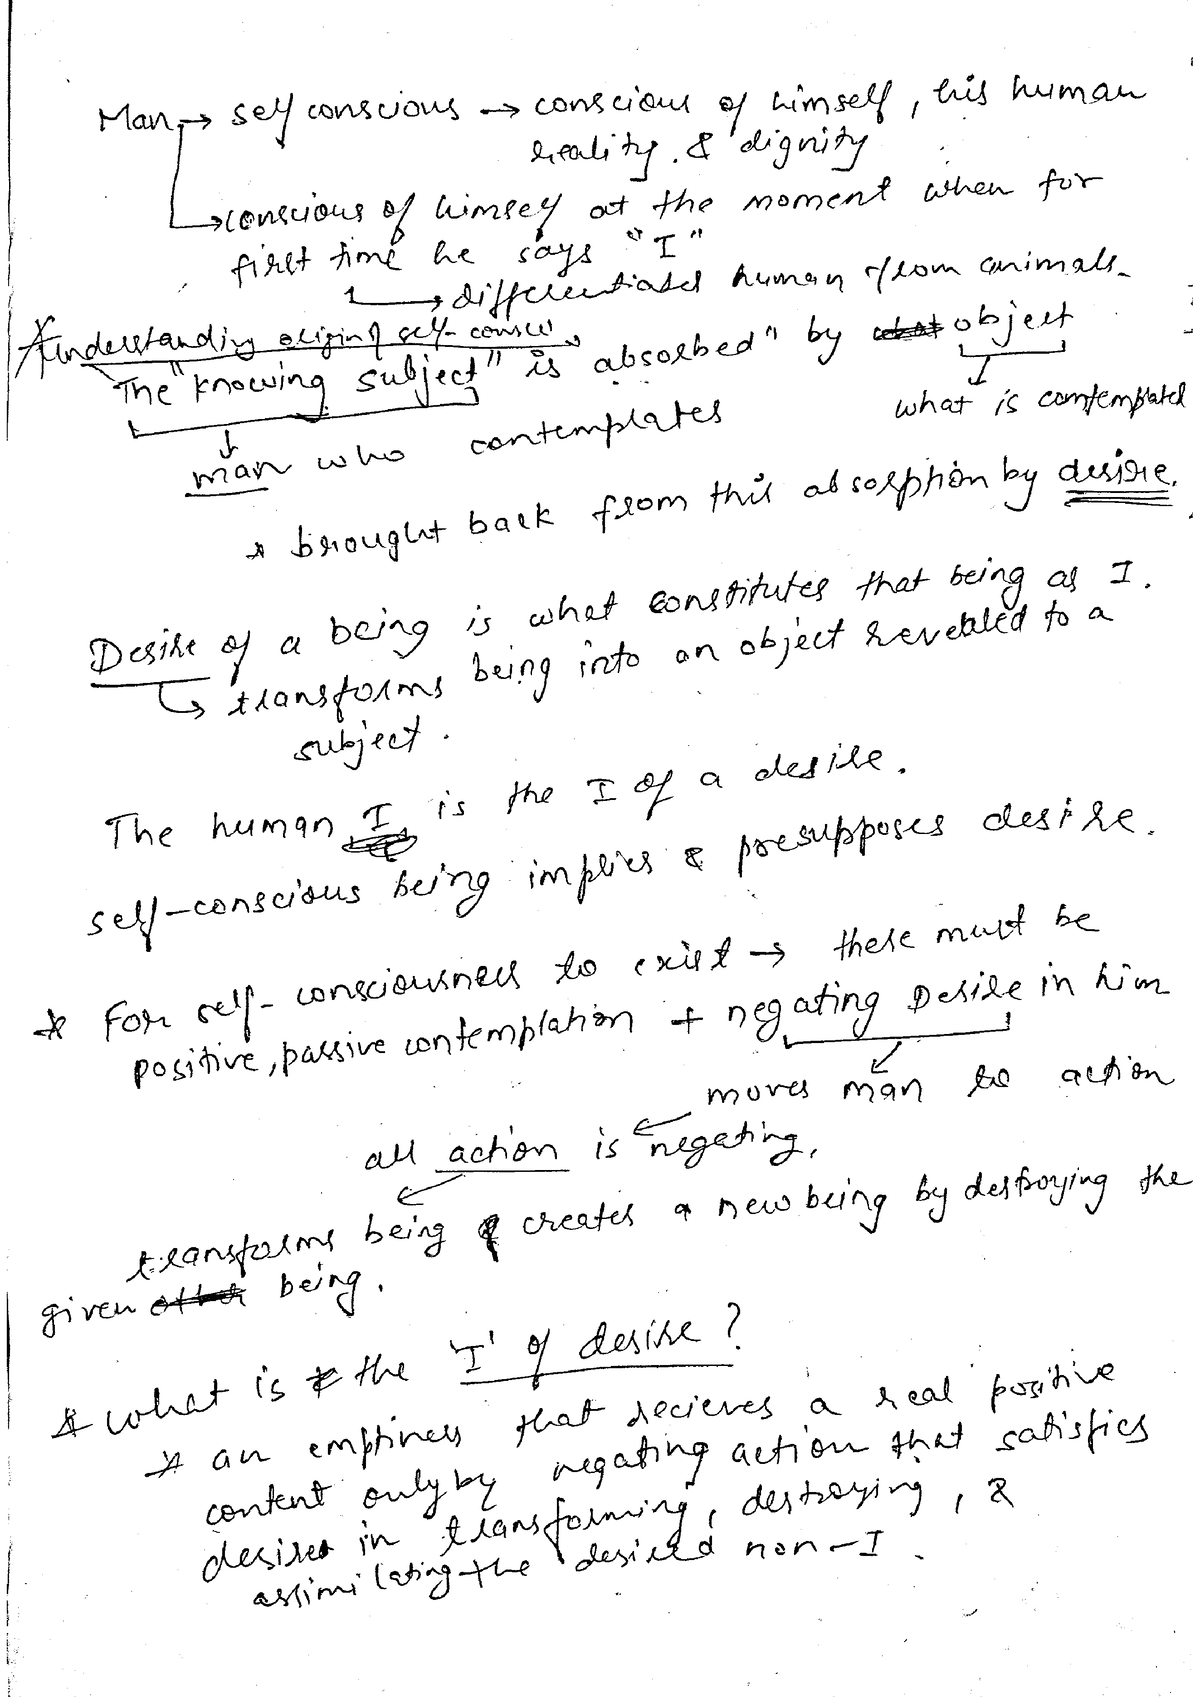 Man → self conscious → conscious of himself, his human
reality. & dignity
→ conscious of himself at the moment when for
first time he says "I"
→ differentiates human from animals.
* Understanding origin of self-consci
The "knowing subject" is absorbed" by object
what is contemplated
man who contemplates
* brought back from this absorption by desire.
Desire of a being is what constitutes that being as I.
→ transforms being into an object revealed to a
subject.
The human I is the I of a desire.
self-conscious being implies & presupposes desire.
* For self-consciousness to exist → there must be
positive, passive contemplation + negating Desire in him
moves man to action
all action is negating.
transforms being & creates a new being by destroying the
given other being.
* what is the 'I' of desire?
* an emptiness that recieves a real positive
content only by negating action that satisfies
desire in transforming, destroying, &
assimilating the desired non-I.